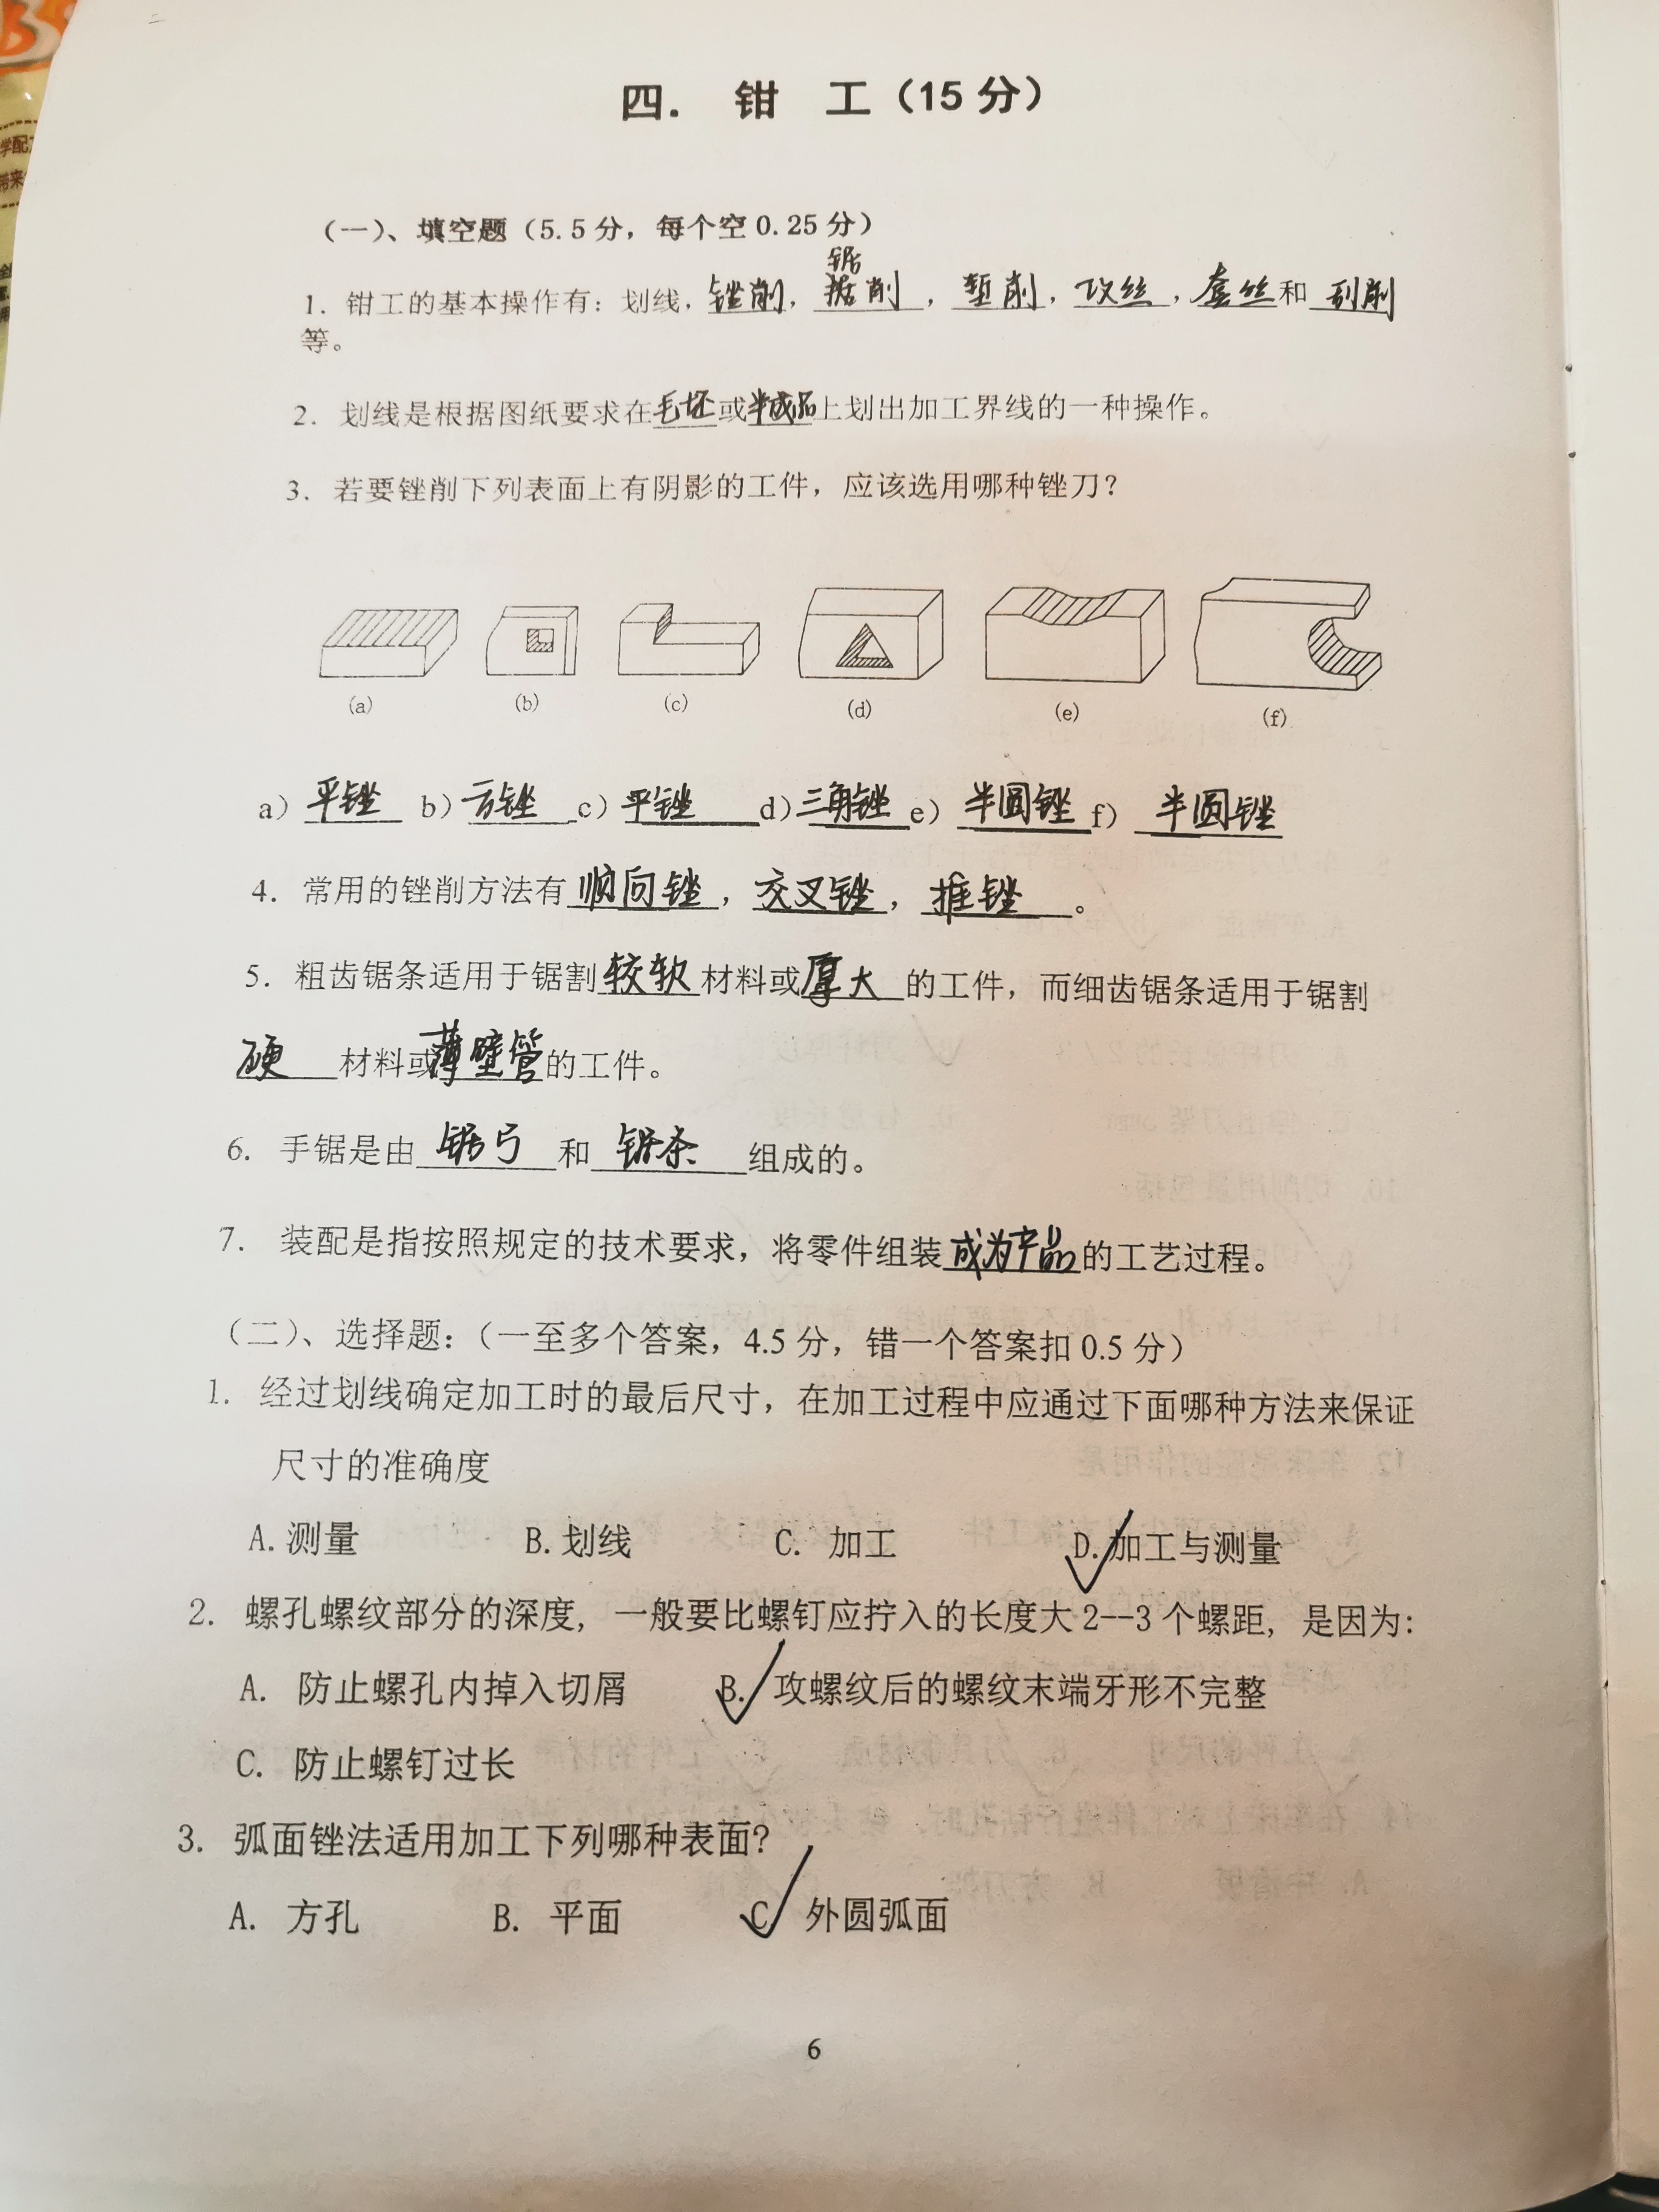 学配
带来
四. 钳 工（15 分）
（一）、填空题（5.5 分，每个空 0.25 分）
锯
1. 钳工的基本操作有：划线，锉削，据削，堑削，攻丝，套丝和刮削
等。
2. 划线是根据图纸要求在毛坯或半成品上划出加工界线的一种操作。
3. 若要锉削下列表面上有阴影的工件，应该选用哪种锉刀？
(a) (b) (c) (d) (e) (f)
a）平锉 b）方锉 c）平锉 d）三角锉 e）半圆锉 f）半圆锉
4. 常用的锉削方法有顺向锉，交叉锉，推锉。
5. 粗齿锯条适用于锯割较软材料或厚大的工件，而细齿锯条适用于锯割
硬材料或薄壁管的工件。
6. 手锯是由锯弓和锯条组成的。
7. 装配是指按照规定的技术要求，将零件组装成为产品的工艺过程。
（二）、选择题：（一至多个答案，4.5 分，错一个答案扣 0.5 分）
1. 经过划线确定加工时的最后尺寸，在加工过程中应通过下面哪种方法来保证
尺寸的准确度
A. 测量 B. 划线 C. 加工 D. 加工与测量
2. 螺孔螺纹部分的深度，一般要比螺钉应拧入的长度大 2--3 个螺距，是因为：
A. 防止螺孔内掉入切屑 B. 攻螺纹后的螺纹末端牙形不完整
C. 防止螺钉过长
3. 弧面锉法适用加工下列哪种表面？
A. 方孔 B. 平面 C. 外圆弧面
6